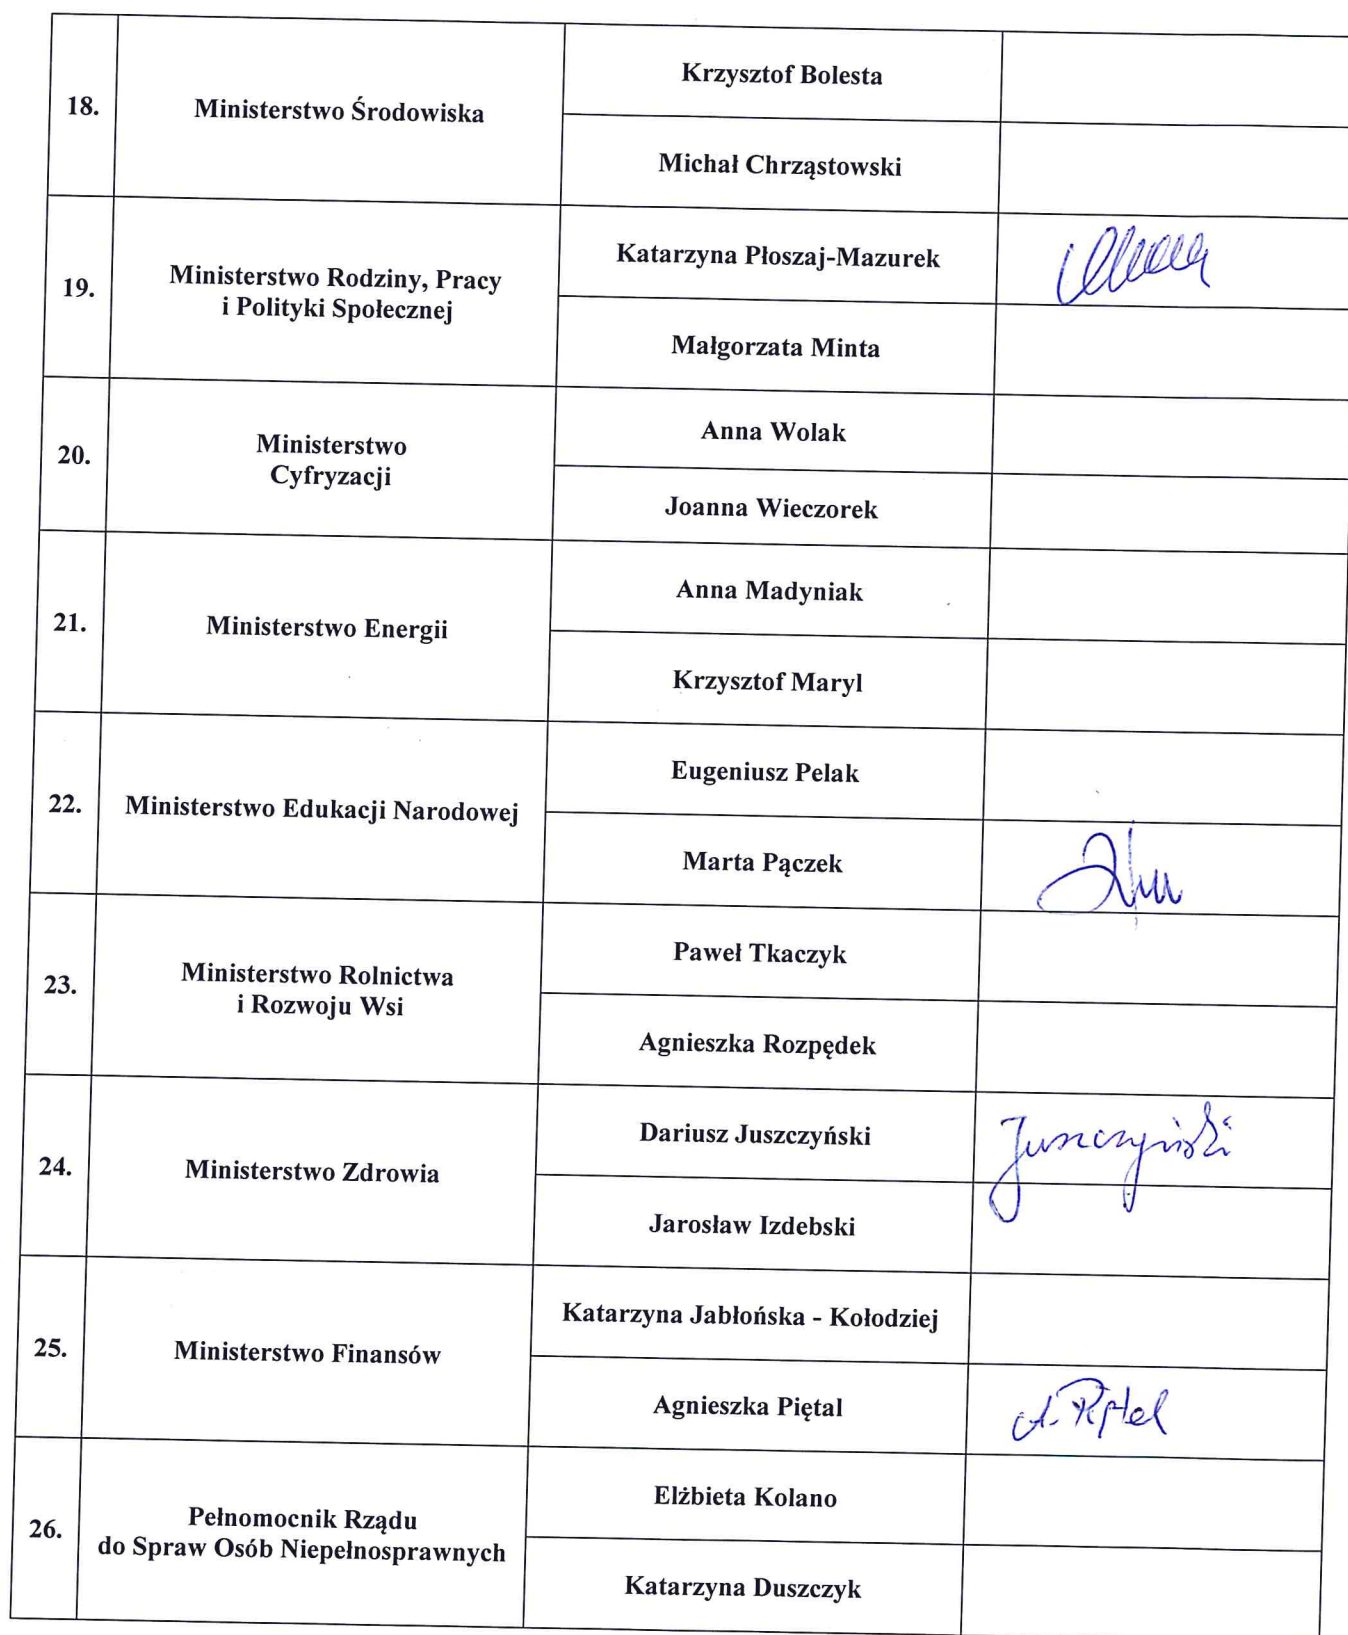 18.
Ministerstwo Środowiska
Krzysztof Bolesta
Michał Chrząstowski
19.
Ministerstwo Rodziny, Pracy
i Polityki Społecznej
Katarzyna Płoszaj-Mazurek
Małgorzata Minta
20.
Ministerstwo
Cyfryzacji
Anna Wolak
Joanna Wieczorek
21.
Ministerstwo Energii
Anna Madyniak
Krzysztof Maryl
22.
Ministerstwo Edukacji Narodowej
Eugeniusz Pelak
Marta Pączek
23.
Ministerstwo Rolnictwa
i Rozwoju Wsi
Paweł Tkaczyk
Agnieszka Rozpędek
24.
Ministerstwo Zdrowia
Dariusz Juszczyński
Juszczyński
Jarosław Izdebski
25.
Ministerstwo Finansów
Katarzyna Jabłońska - Kołodziej
Agnieszka Piętal
A. Piętal
26.
Pełnomocnik Rządu
do Spraw Osób Niepełnosprawnych
Elżbieta Kolano
Katarzyna Duszczyk